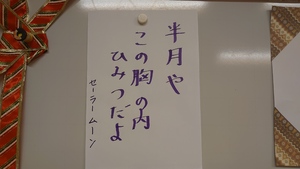 半月や
この胸の内
ひみつだよ
セーラームーン